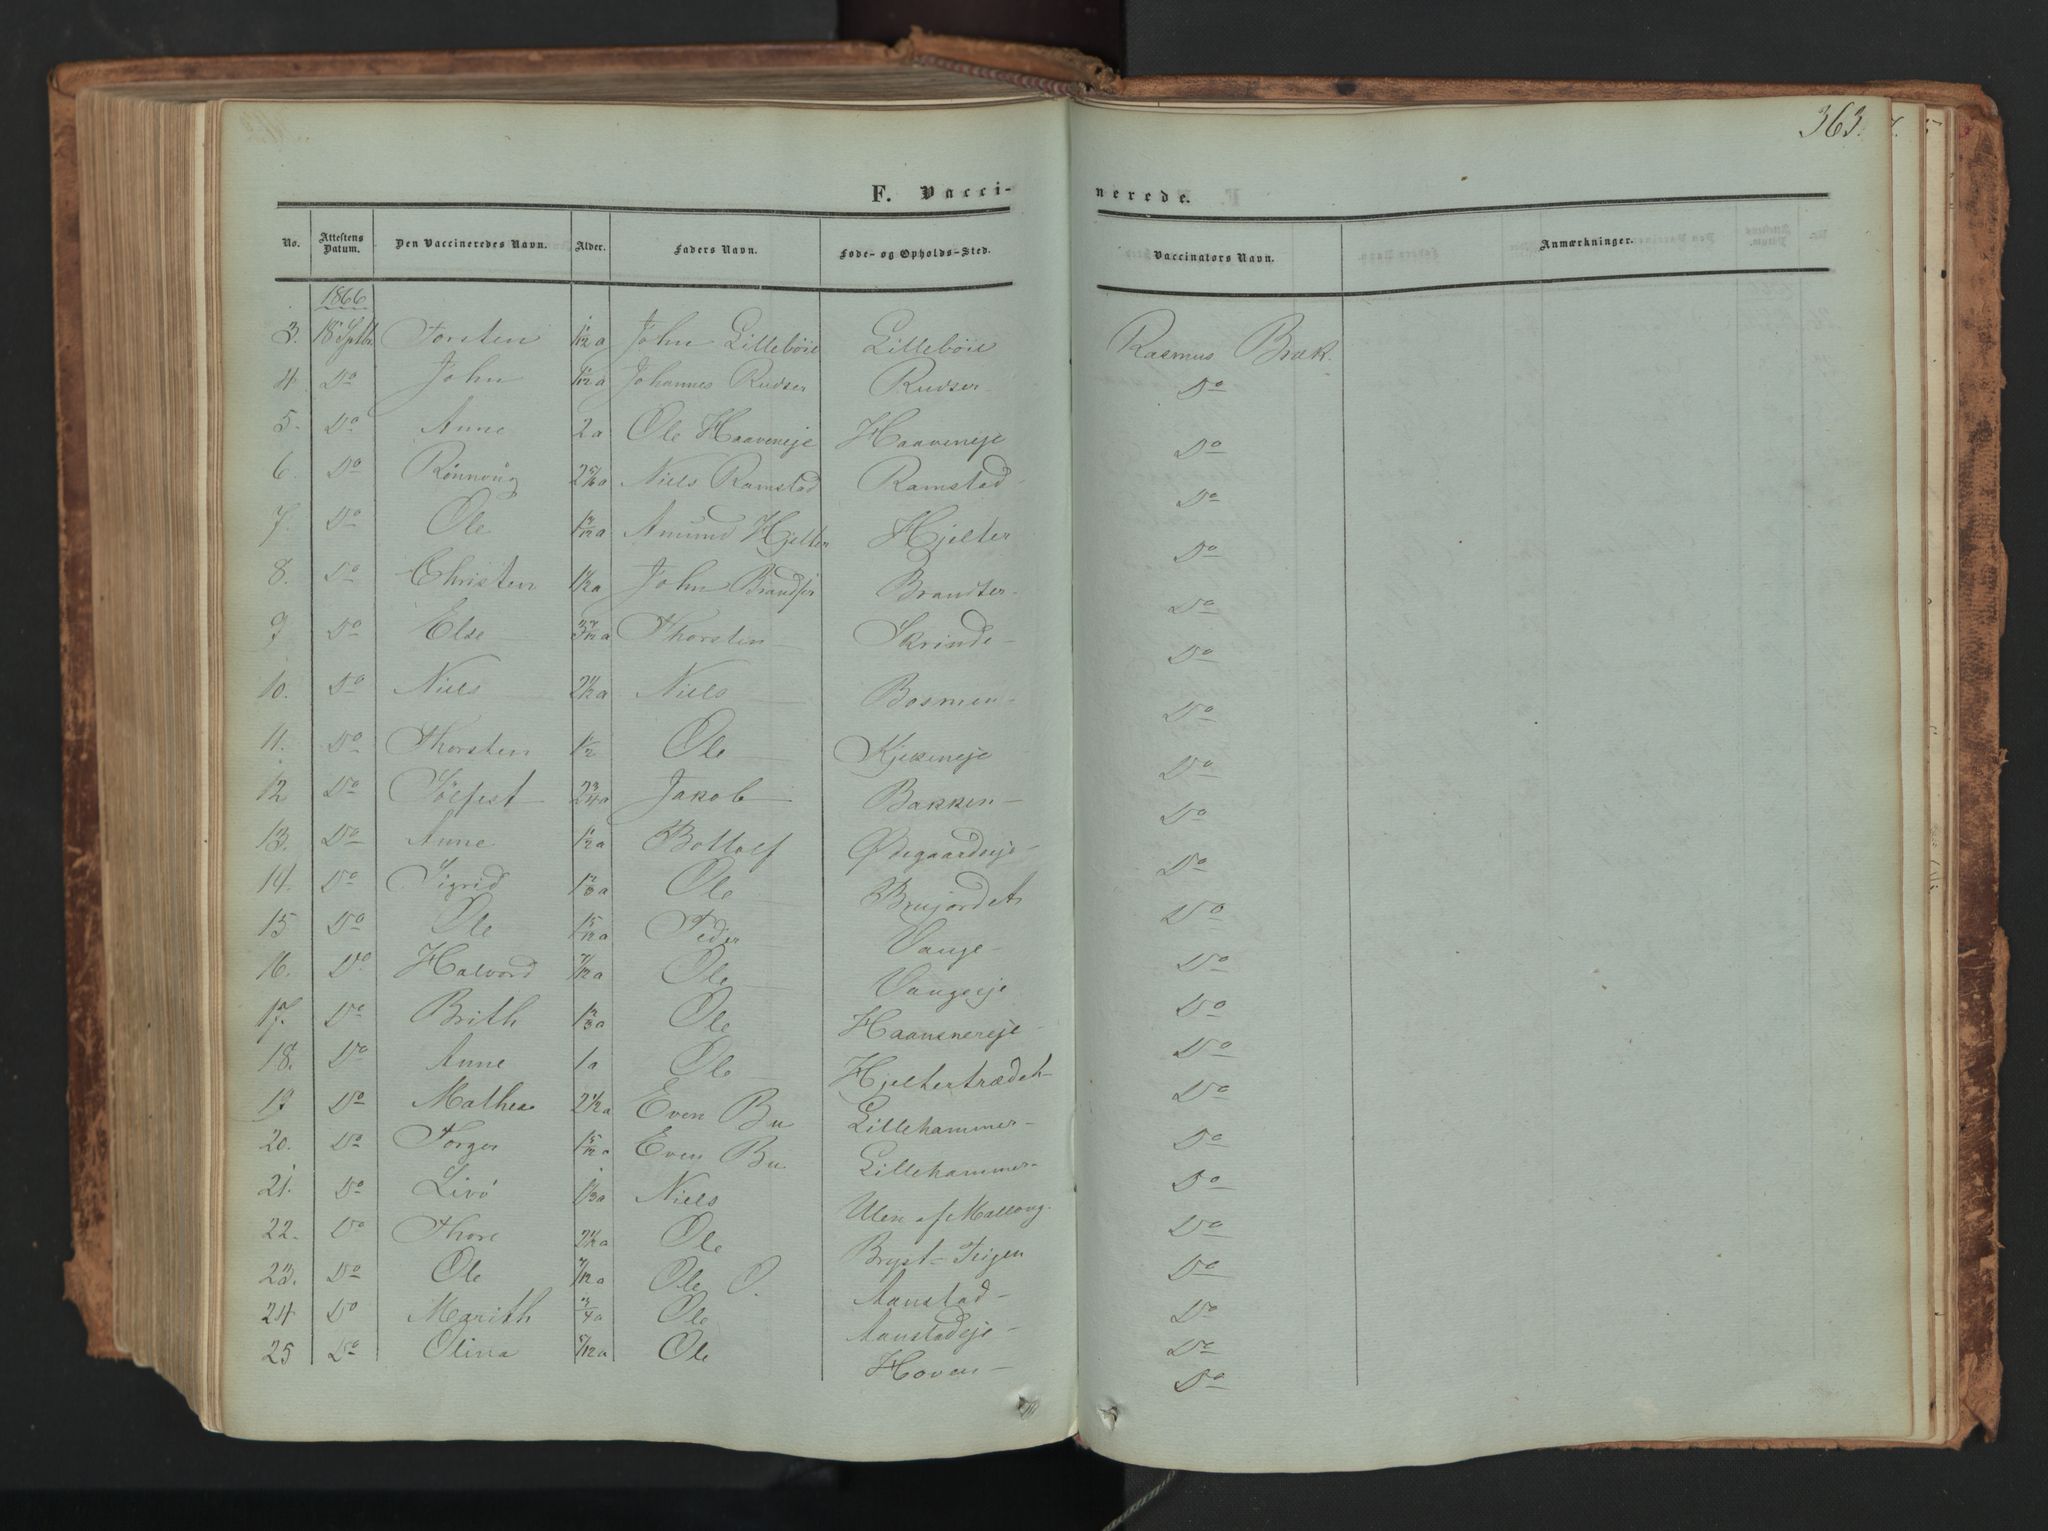 363.
F. Vacci- nerede.
No. Attestens Datum. Den Vaccineredes Navn. Alder. Faders Navn. Føde- og Opholds-Sted. Vaccinators Navn. Anmærkninger.
1866
3. 18 Septbr Torsten John Lillebøie Lillebøie Rasmus Bræk.
4. Do John Johannes Rudser Rudser Do
5. Do Anne 2 a Ole Haaveneje Haaveneje Do
6. Do Rønnoug Niels Ramstad Ramstad Do
7. Do Ole Amund Hjelter Hjelter Do
8. Do Christen 1½ a John Brandser Brandser Do
9 Do Else Thorsten Skrinde Do
10. Do Niels 2½ a Niels Bosmen Do
11. Do Thorsten 1½ Ole Kjekeneje Do
12 Do Sølfest 2¾ a Jakob Bakken Do
13. Do Anne 1½ a Bottolf Ødegaardseje Do
14. Do Sigrid 1⅔ a Ole Brujordet Do
15 Do Ole 1 5/12 a Peder Vange Do
16. Do Halvord 7/12 a Ole Vangeeje Do
17. Do Brith 1⅔ a Ole Haansnereje Do
18. Do Anne 1 a Ole Hjeltertrædet Do
19 Do Mathea 2½ a Even Bu Lillehammer Do
20. Do Torger 1 5/12 a Even Bu Lillehammer Do
21. Do Livø 1⅓ a Niels Ulen af Mallong. Do
22. Do Thore 2½ a Ole Bryst-Teigen Do
23. Do Ole 7/12 a Ole O. Aanstad Do
24 Do Marith ¾ a Ole Aanstadeje Do
25 Do Olina Ole Hoven Do